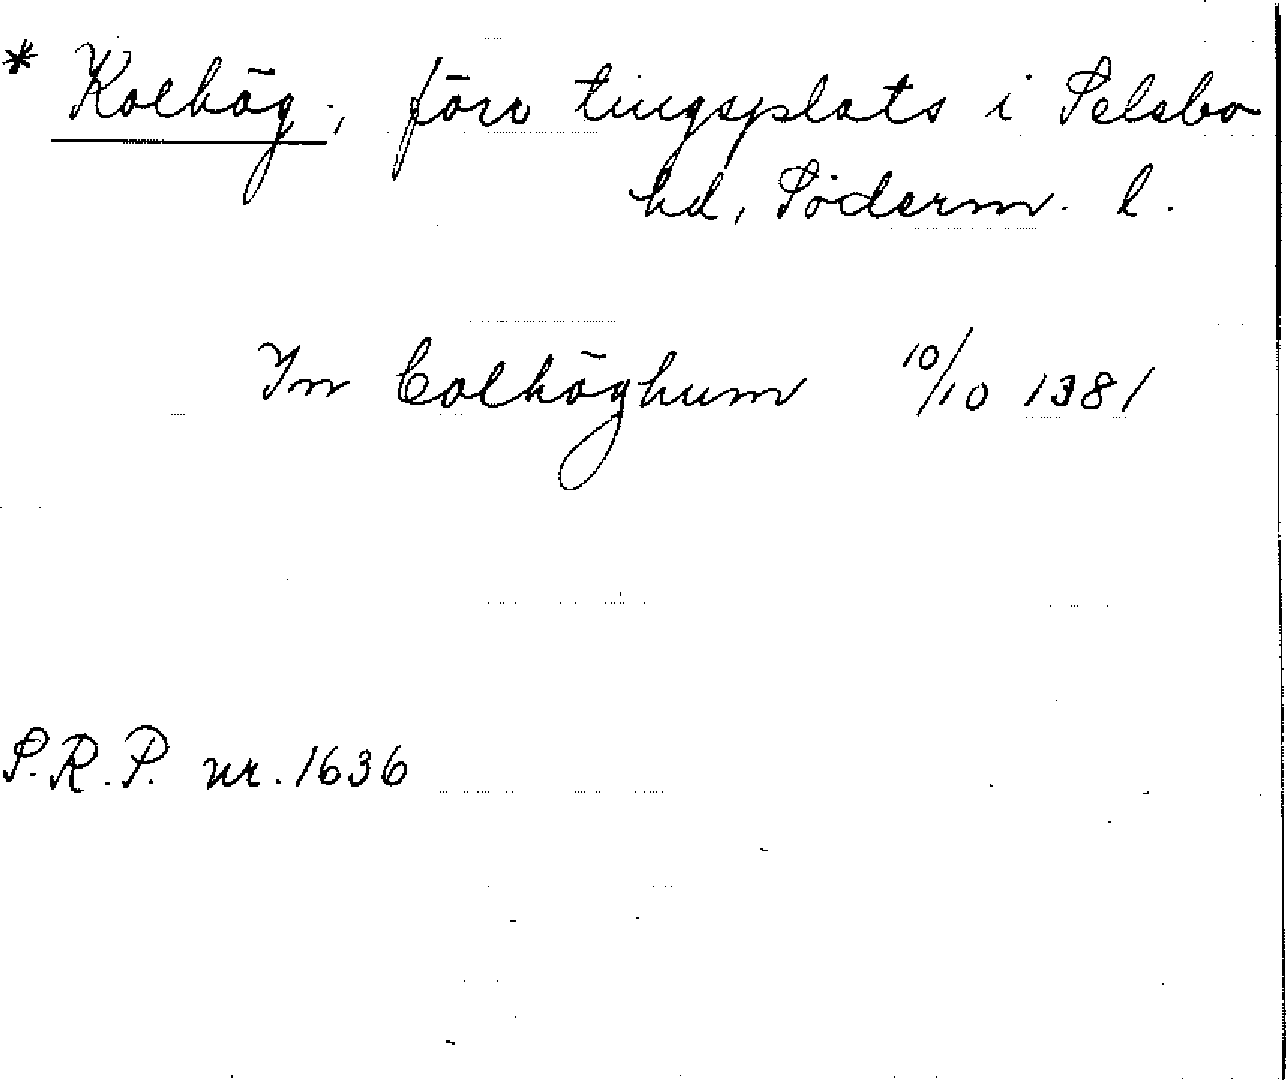 * Kolhög, förv tingsplats i Selebo
hd, Söderm. l.
In Colhöghum 10/10 1381
S.R.P. nr. 1636